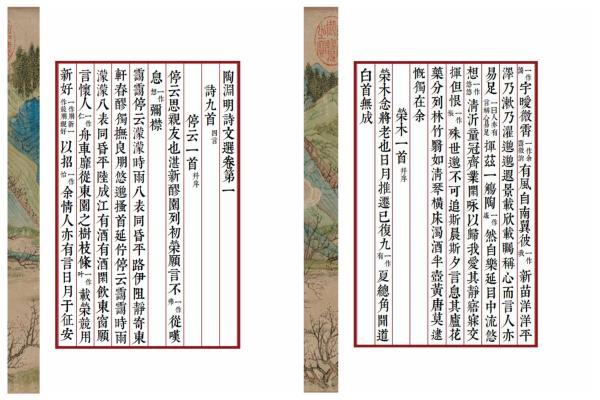 陶淵明詩文選卷第一
詩九首 四言
停云一首 并序
停云思親友也湛新醪園列初榮願言不一作弗從嘆
息一作想彌襟
靄靄停云濛濛時雨八表同昏平路伊阻靜寄東
軒春醪獨撫良朋悠邈搔首延佇停云靄靄時雨
濛濛八表同昏平陸成江有酒有酒閒飲東窗願
言懷人一作仁舟車靡從東園之樹枝條一作載榮競用
新好一作朋新一作朋親好以招一作怡余情人亦有言日月于征安
一作宇曖微霄一作余靄微消有風自南翼彼一作我新苗洋洋平
澤乃漱乃濯邈邈遐景載欣載矚稱心而言人亦
易足一曰人亦有言稱心易足揮茲一觴陶一作遙然自樂延目中流悠
想一作悠悠清沂童冠齊業閒咏以歸我愛其靜寤寐交
揮但恨一作悵殊世邈不可追斯晨斯夕言息其廬花
藥分列林竹翳如清琴橫床濁酒半壺黃唐莫逮
慨獨在余
榮木一首 并序
榮木念將老也日月推遷已復九一作有夏總角聞道
白首無成